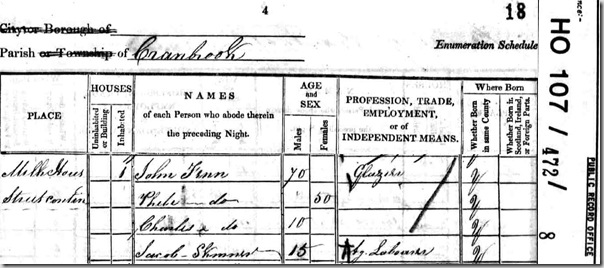 4
18
City or Borough of
Parish or Township of Cranbrook
Enumeration Schedule
PLACE
HOUSES
Uninhabited or Building
Inhabited
NAMES
of each Person who abode therein the preceding Night.
AGE and SEX
Males
Females
PROFESSION, TRADE, EMPLOYMENT, or of INDEPENDENT MEANS.
Where Born
Whether Born in same County
Whether Born in Scotland, Ireland, or Foreign Parts.
Milk Hous 1 John Fenn 70 Glazier y
Street contin Phebe do 50 y
Charles do 10 y
Jacob Skinner 15 Ag. Labourer y
HO 107 / 472 / 8
PUBLIC RECORD OFFICE